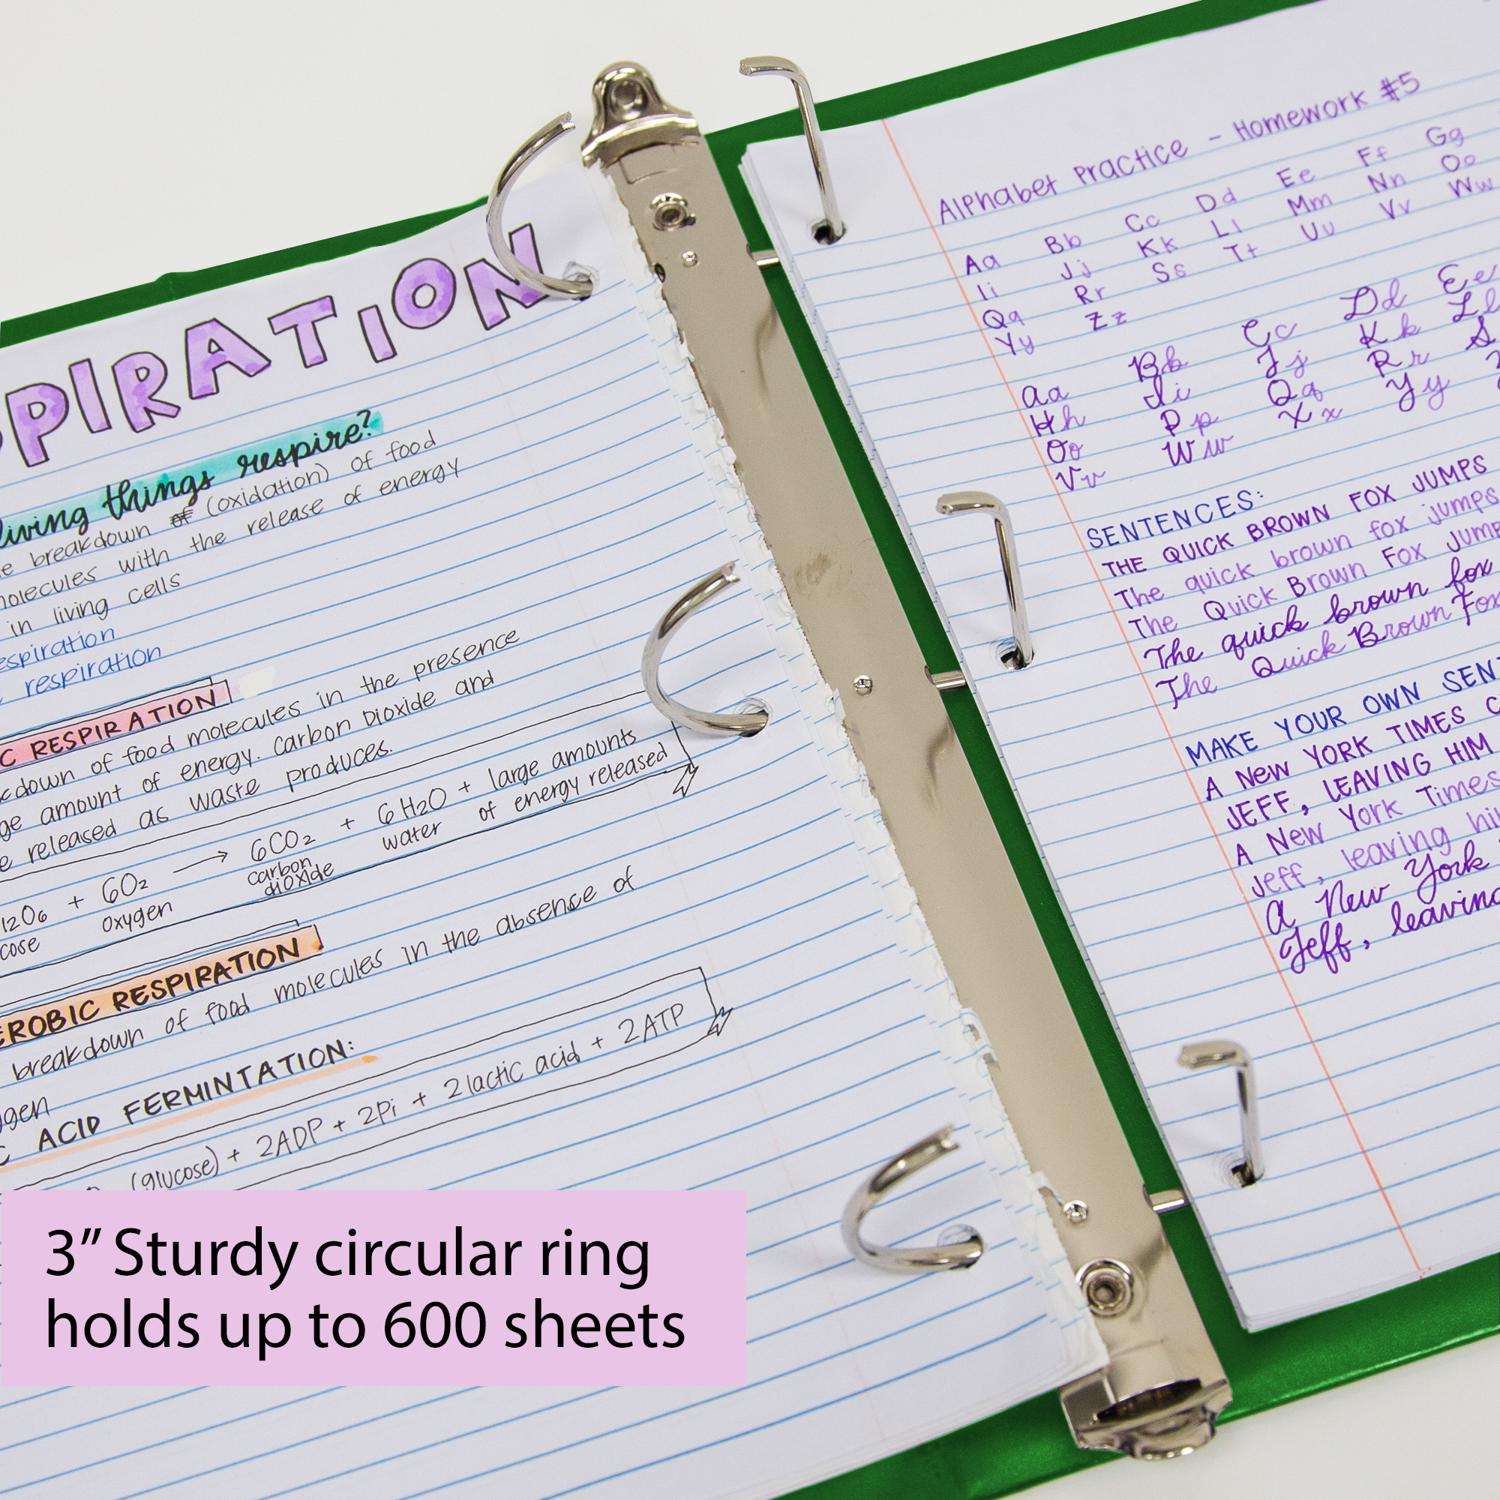 PIRATION
living things respire?
breakdown of (oxidation) of food
molecules with the release of energy
in living cells
espiration
respiration
C RESPIRATION
kdown of food molecules in the presence
ge amount of energy. Carbon Dioxide and
e released as waste produces.
12O6 + 6O2 → 6CO2 + 6H2O + large amounts
cose oxygen carbon dioxide water of energy released
EROBIC RESPIRATION
breakdown of food molecules in the absence of
gen
C ACID FERMINTATION:
(glucose) + 2ADP + 2Pi + 2lactic acid + 2ATP
Alphabet Practice - Homework #5
Aa Bb Cc Dd Ee Ff Gg
Ii Jj Kk Ll Mm Nn Oo
Qq Rr Ss Tt Uu Vv Ww
Yy Zz
Aa Bb Cc Dd Ee
Hh Ii Jj Kk Ll
Oo Pp Qq Rr S
Vv Ww Xx Yy
SENTENCES:
THE QUICK BROWN FOX JUMPS
The quick brown fox jumps
The Quick Brown Fox Jump
The quick brown fox
The Quick Brown Fox
MAKE YOUR OWN SENT
A NEW YORK TIMES C
JEFF, LEAVING HIM
A New York Times
Jeff, leaving hi
A New York
Jeff, leaving
3” Sturdy circular ring
holds up to 600 sheets